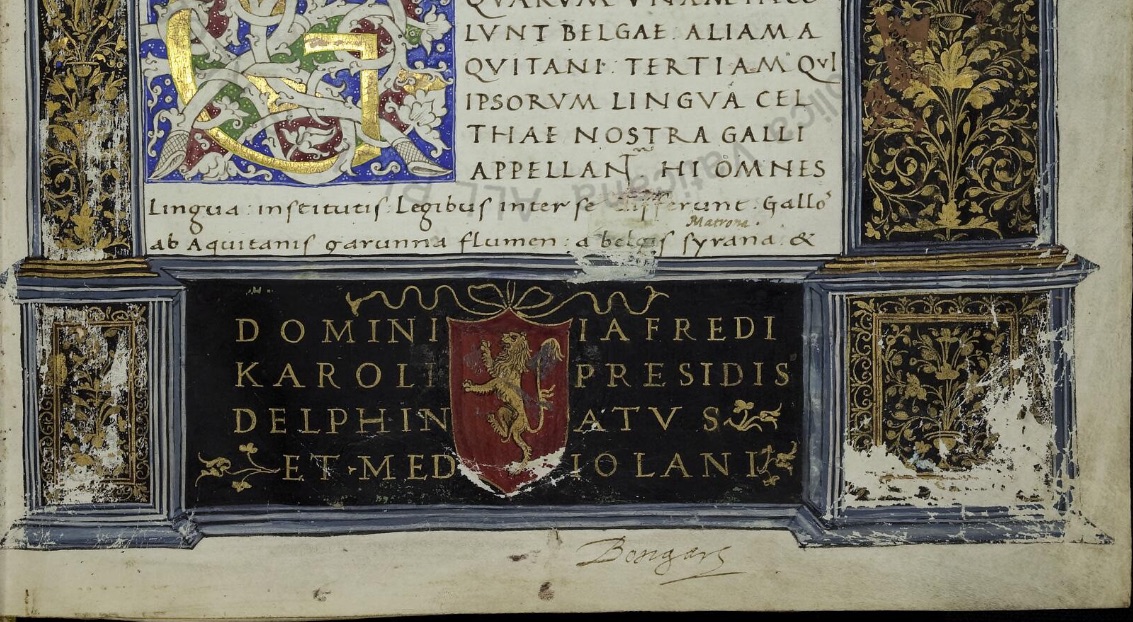 QVARVM VNAM INCO
LVNT BELGAE: ALIAM A
QVITANI: TERTIAM QVI
IPSORVM LINGVA CEL
THAE NOSTRA GALLI
APPELLANT HI OMNES
Lingua: institutis: Legibus inter se differunt. Gallos
Matrona.
ab Aquitanis garunna flumen: a belgis syrana: &
DOMINI IAFREDI
KAROLI PRESIDIS
DELPHINATVS
ET·MEDIOLANI
Bongars